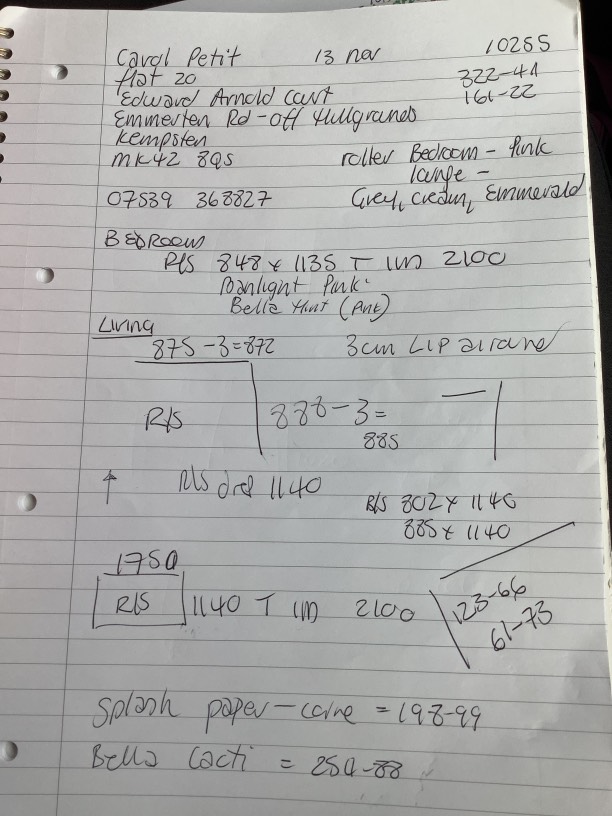 Carol Petit 13 nov 10255
flat 20 322-41
Edward Arnold Court 161-22
Emmerten Rd - off Hillgrounds
Kempsten
MK42 8QS roller Bedroom - Pink
large -
07539 368827 Grey, cream, Emmerald
BEDROOM
R/S 848 x 1135 T 1M 2100
Pink
Bella (Pink)
Living
875 - 3 = 872 3cm LIP all round
R/S 888 - 3 =
885
↑ R/S drop 1140
R/S 802 x 1140
885 x 1140
1750
R/S 1140 T 1M 2100 123-66
61-73
Splash paper - = 198-99
Bella Cacti = 250-88